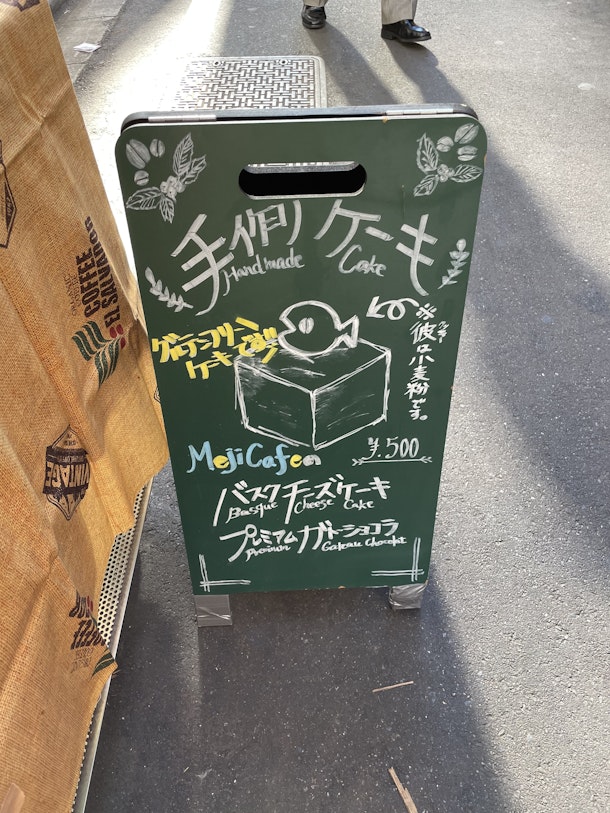 手作りケーキ
Handmade Cake
グルテンフリー
ケーキです!!
クッキー
※彼は小麦粉です。
MojiCafeの
¥.500
バスクチーズケーキ
Basque Cheese Cake
プレミアムガトーショコラ
Premium Gateau Chocolat
COFFEE
EL SALVADOR
ORGANIC
VINTAGE